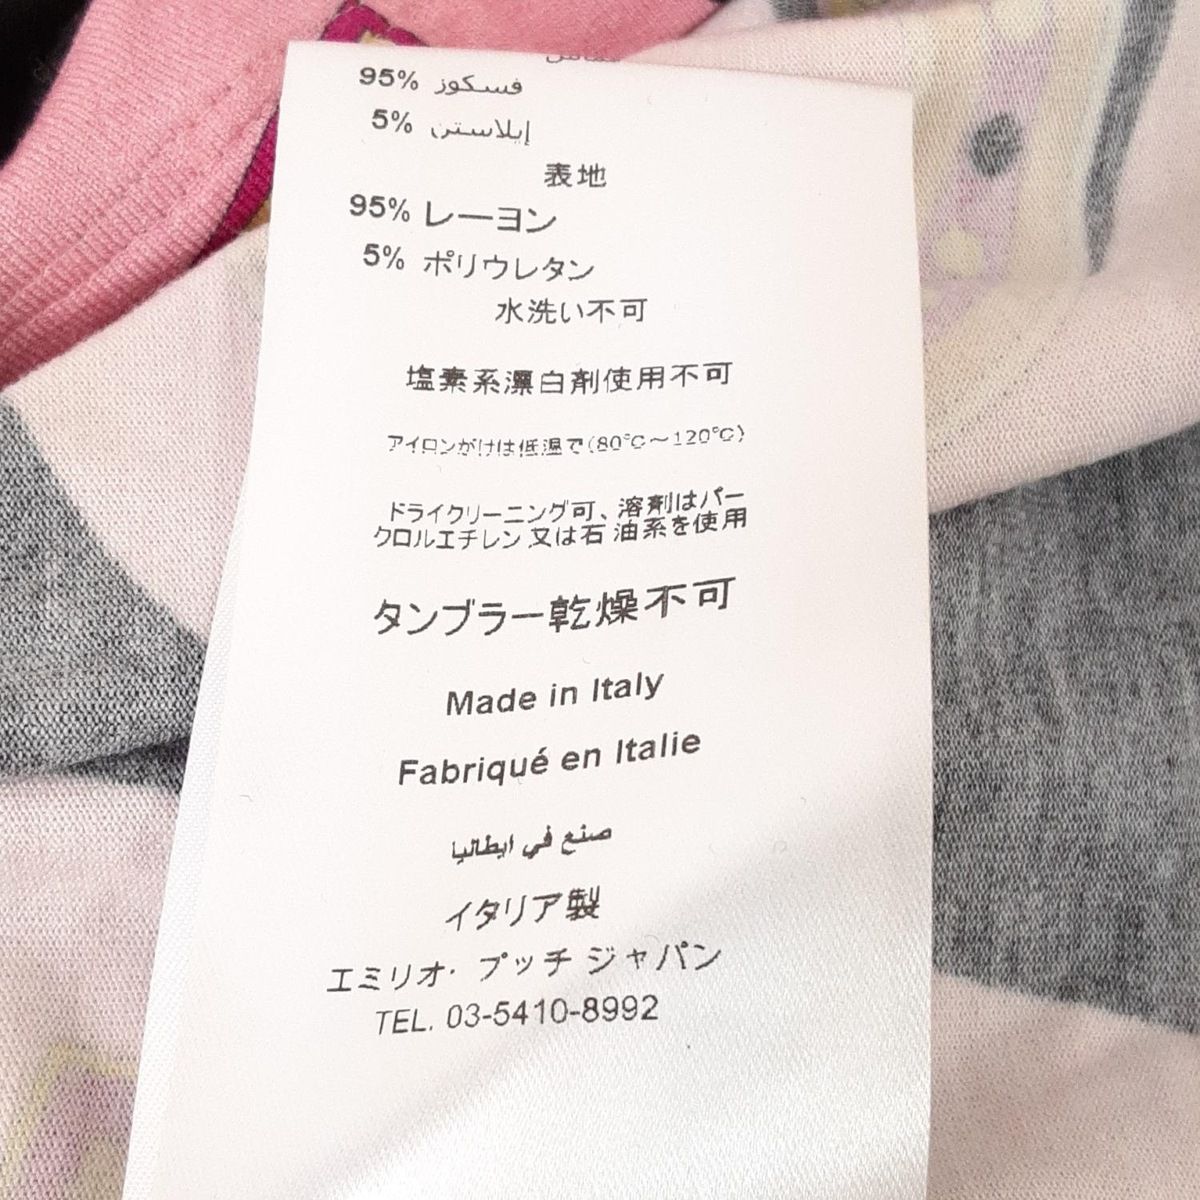 95% فسكوز
5% إيلاستن
表地
95% レーヨン
5% ポリウレタン
水洗い不可
塩素系漂白剤使用不可
アイロンがけは低温で(80℃～120℃)
ドライクリーニング可、溶剤はパー
クロルエチレン又は石油系を使用
タンブラー乾燥不可
Made in Italy
Fabriqué en Italie
صنع في ايطاليا
イタリア製
エミリオ・プッチ ジャパン
TEL. 03-5410-8992